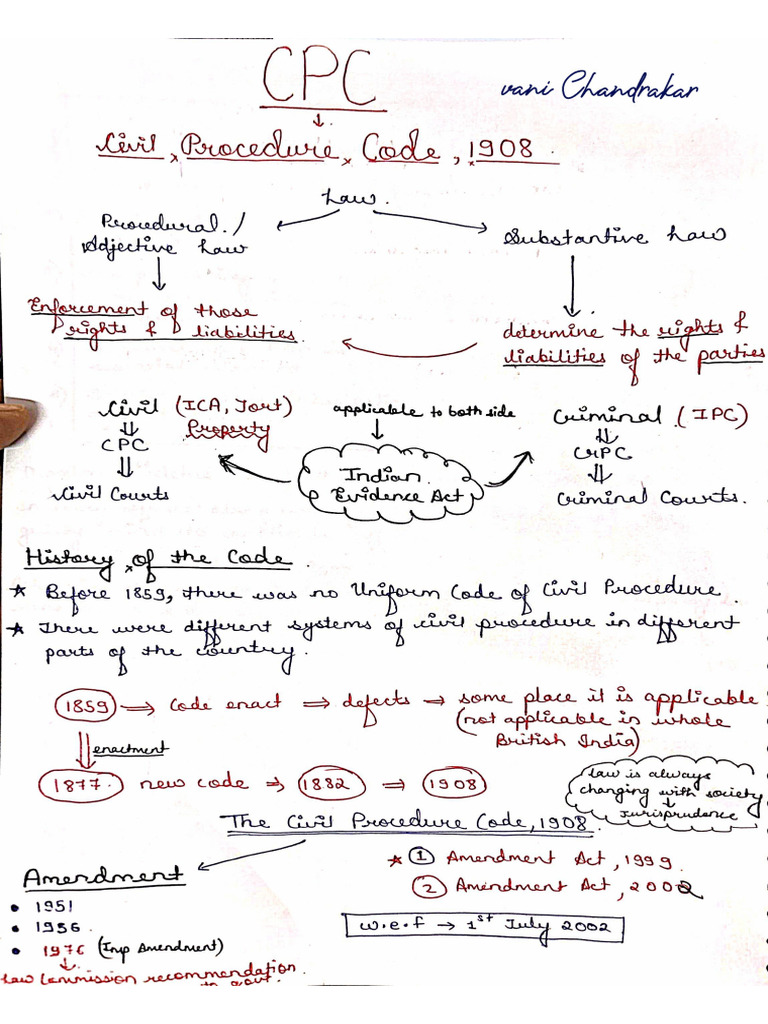 CPC
vani Chandrakar
↓
Civil Procedure Code, 1908.
Law.
Procedural / Adjective Law
Substantive Law
Enforcement of those
rights & liabilities.
determine the rights &
liabilities of the parties
Civil (ICA, Tort)
Property
applicable to both side
Criminal (IPC)
CPC
CrPC
Indian
Evidence Act
Civil Courts
Criminal Courts.
History of the Code.
★ Before 1859, there was no Uniform Code of Civil Procedure.
★ There were different systems of civil procedure in different
parts of the country.
1859 ⇒ Code enact ⇒ defects → some place it is applicable
(not applicable in whole
British India)
enactment
1877. new code ⇒ 1882 ⇒ 1908
law is always
changing with society
↓
jurisprudence
The Civil Procedure Code, 1908.
Amendment
★ ① Amendment Act, 1999.
② Amendment Act, 2002
• 1951
• 1956
• 1976 (Imp Amendment)
w.e.f → 1st July 2002
Law Commission recommendation
to govt.